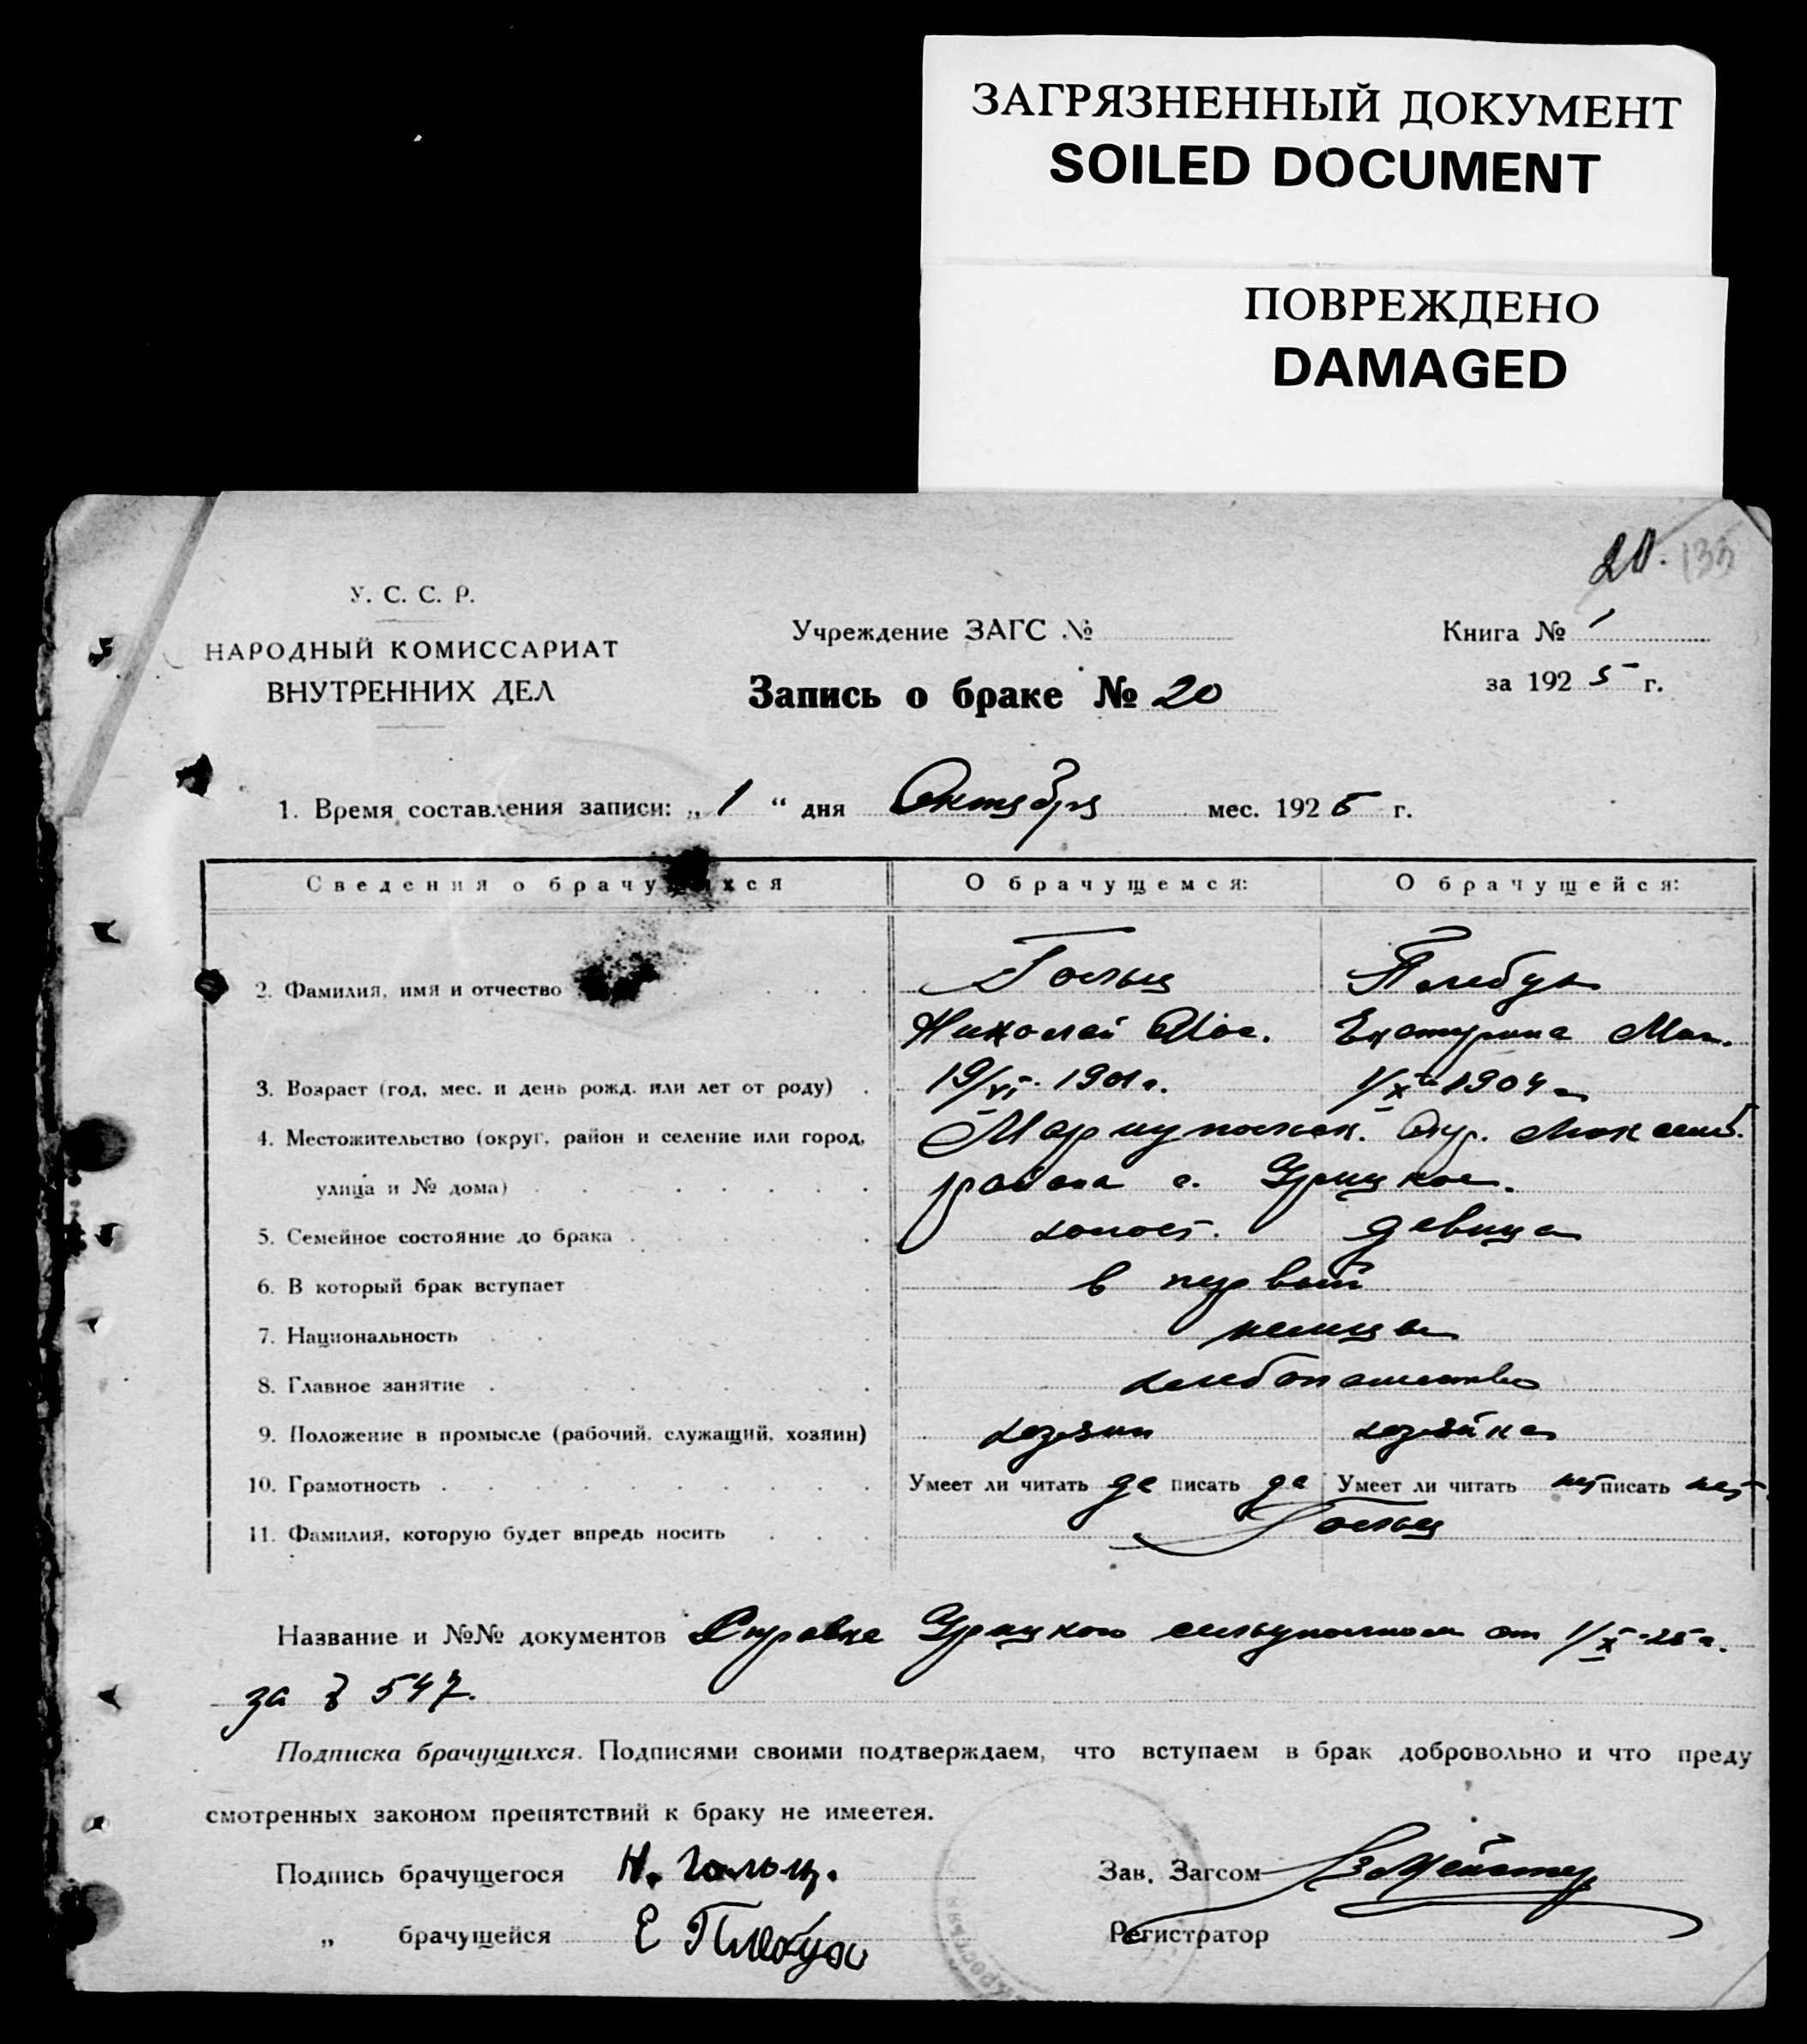 ЗАГРЯЗНЕННЫЙ ДОКУМЕНТ
SOILED DOCUMENT
ПОВРЕЖДЕНО
DAMAGED
20. 133
У. С. С. Р.
НАРОДНЫЙ КОМИССАРИАТ
ВНУТРЕННИХ ДЕЛ
Учреждение ЗАГС №
Запись о браке № 20
Книга № 1
за 1925 г.
1. Время составления записи: „ 1 “ дня Октября мес. 1925 г.
Сведения о брачущихся О брачущемся: О брачущейся:
2. Фамилия, имя и отчество Гольц Плебук
Николай Екатерина
3. Возраст (год, мес. и день рожд. или лет от роду) 19/VI 1901 г. 1/X 1904 г.
4. Местожительство (округ, район и селение или город, Мариупольск. Окр.
улица и № дома) района с. Урицкое.
5. Семейное состояние до брака холост. девица
6. В который брак вступает в первый
7. Национальность немцы
8. Главное занятие хлебопашество
9. Положение в промысле (рабочий, служащий, хозяин) хозяин хозяйка
10. Грамотность Умеет ли читать да писать да Умеет ли читать нет писать нет
11. Фамилия, которую будет впредь носить Гольц
Название и №№ документов Справка Урицкого от 1/X-25 г.
за № 547.
Подписка брачущихся. Подписями своими подтверждаем, что вступаем в брак добровольно и что преду
смотренных законом препятствий к браку не имеется.
Подпись брачущегося Н. Гольц.
Зав. Загсом
„ брачущейся Е Плебук
Регистратор